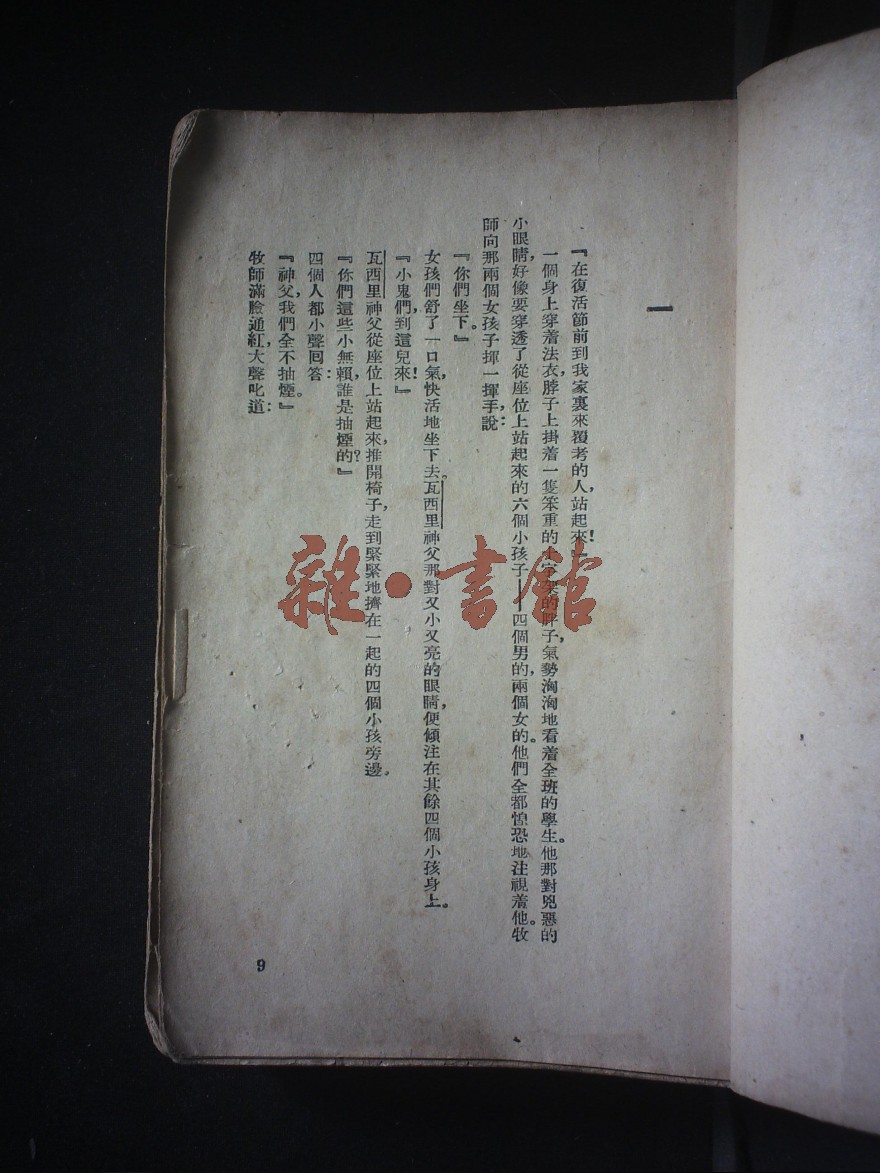 一
『在復活節前到我家裏來覆考的人，站起來！』
一個身上穿着法衣，脖子上掛着一隻笨重的十字架的胖子，氣勢洶洶地看着全班的學生。他那對兇惡的
小眼睛，好像要穿透了從座位上站起來的六個小孩子——四個男的，兩個女的。他們全都惶恐地注視着他。牧
師向那兩個女孩子揮一揮手，說：
『你們坐下。』
女孩們舒了一口氣，快活地坐下去。瓦西里神父那對又小又亮的眼睛，便傾注在其餘四個小孩身上。
『小鬼們，到這兒來！』
瓦西里神父從座位上站起來，推開椅子，走到緊緊地擠在一起的四個小孩旁邊。
『你們這些小無賴，誰是抽煙的？』
四個人都小聲回答：
『神父，我們全不抽煙。』
牧師滿臉通紅，大聲叱道：
9
雜·書館